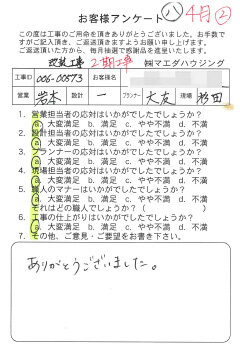 お客様アンケート ㊇ 4月②
この度は工事のご用命を頂きありがとうございました。お手数で
すがご記入頂き、ご返送頂きますようお願い申し上げます。
ご返送頂いた方から、毎月抽選で感謝品を進呈いたします。
改装工事 2期工事 ㈱マエダハウジング
工事ID 006-00573 お客様名
営業 岩本 設計 一 プランナー 大友 現場 杉田
1. 営業担当者の応対はいかがでしたでしょうか?
a. 大変満足 b. 満足 c. やや不満 d. 不満
2. 設計担当者の応対はいかがでしたでしょうか?
a. 大変満足 b. 満足 c. やや不満 d. 不満
3. プランナーの応対はいかがでしたでしょうか?
a. 大変満足 b. 満足 c. やや不満 d. 不満
4. 現場担当者の応対はいかがでしたでしょうか?
a. 大変満足 b. 満足 c. やや不満 d. 不満
5. 職人のマナーはいかがでしたでしょうか?
a. 大変満足 b. 満足 c. やや不満 d. 不満
それはどの職人でしょうか?( )
6. 工事の仕上がりはいかがでしたでしょうか?
a. 大変満足 b. 満足 c. やや不満 d. 不満
7. その他、ご意見・ご要望をお書き下さい。
ありがとうございました。